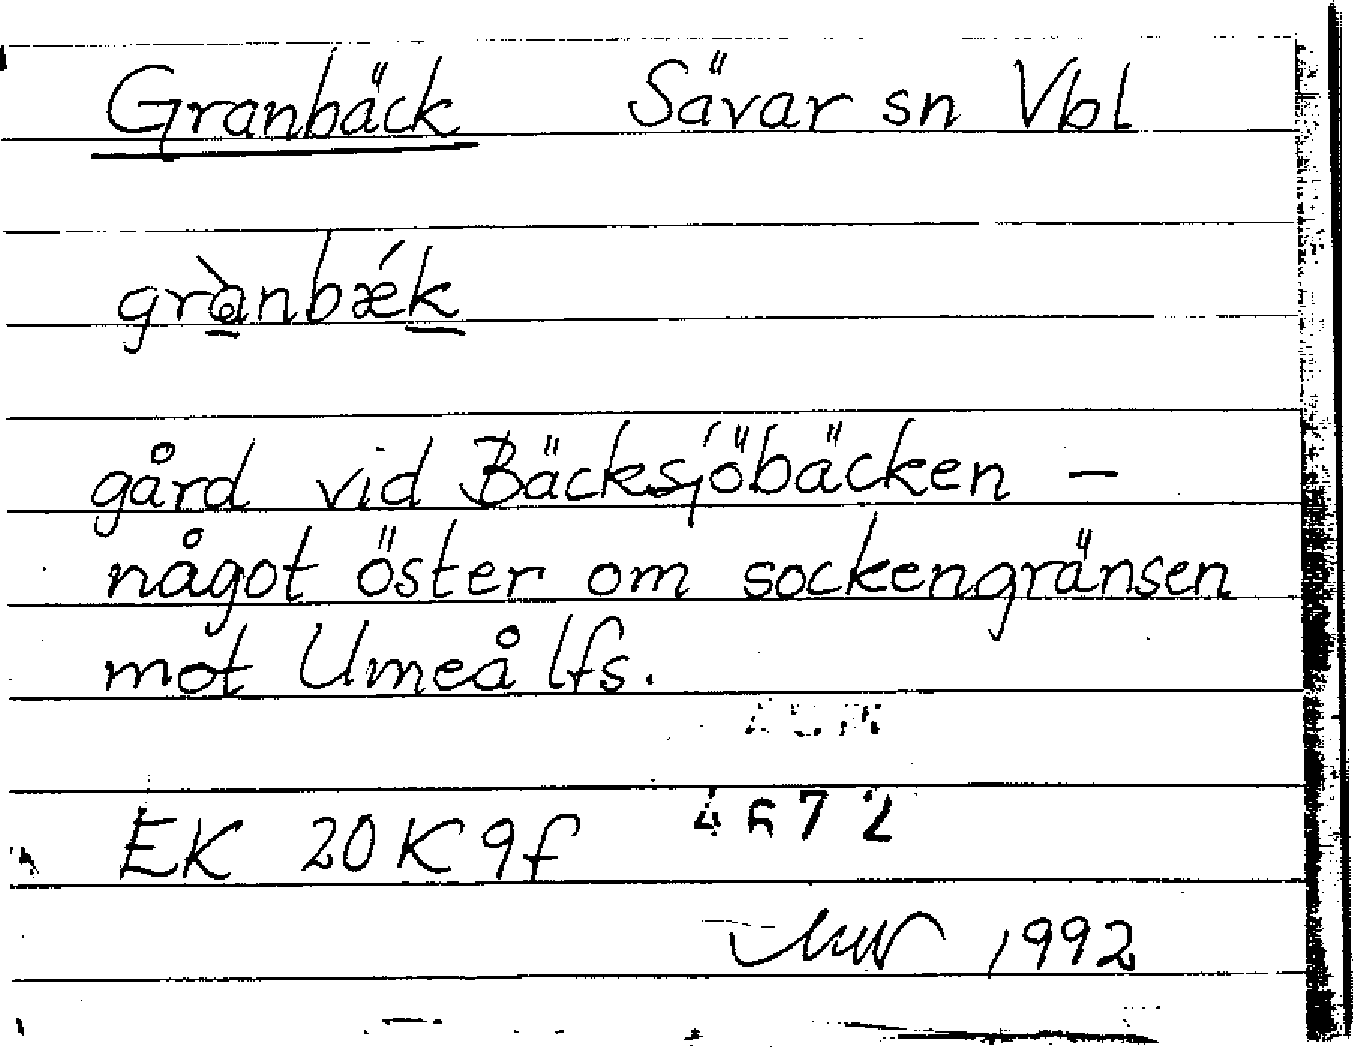 Granbäck Sävar sn Vbl
grànbǽk
gård vid Bäcksjöbäcken –
något öster om sockengränsen
mot Umeå lfs.
4672
EK 20K 9f
1992